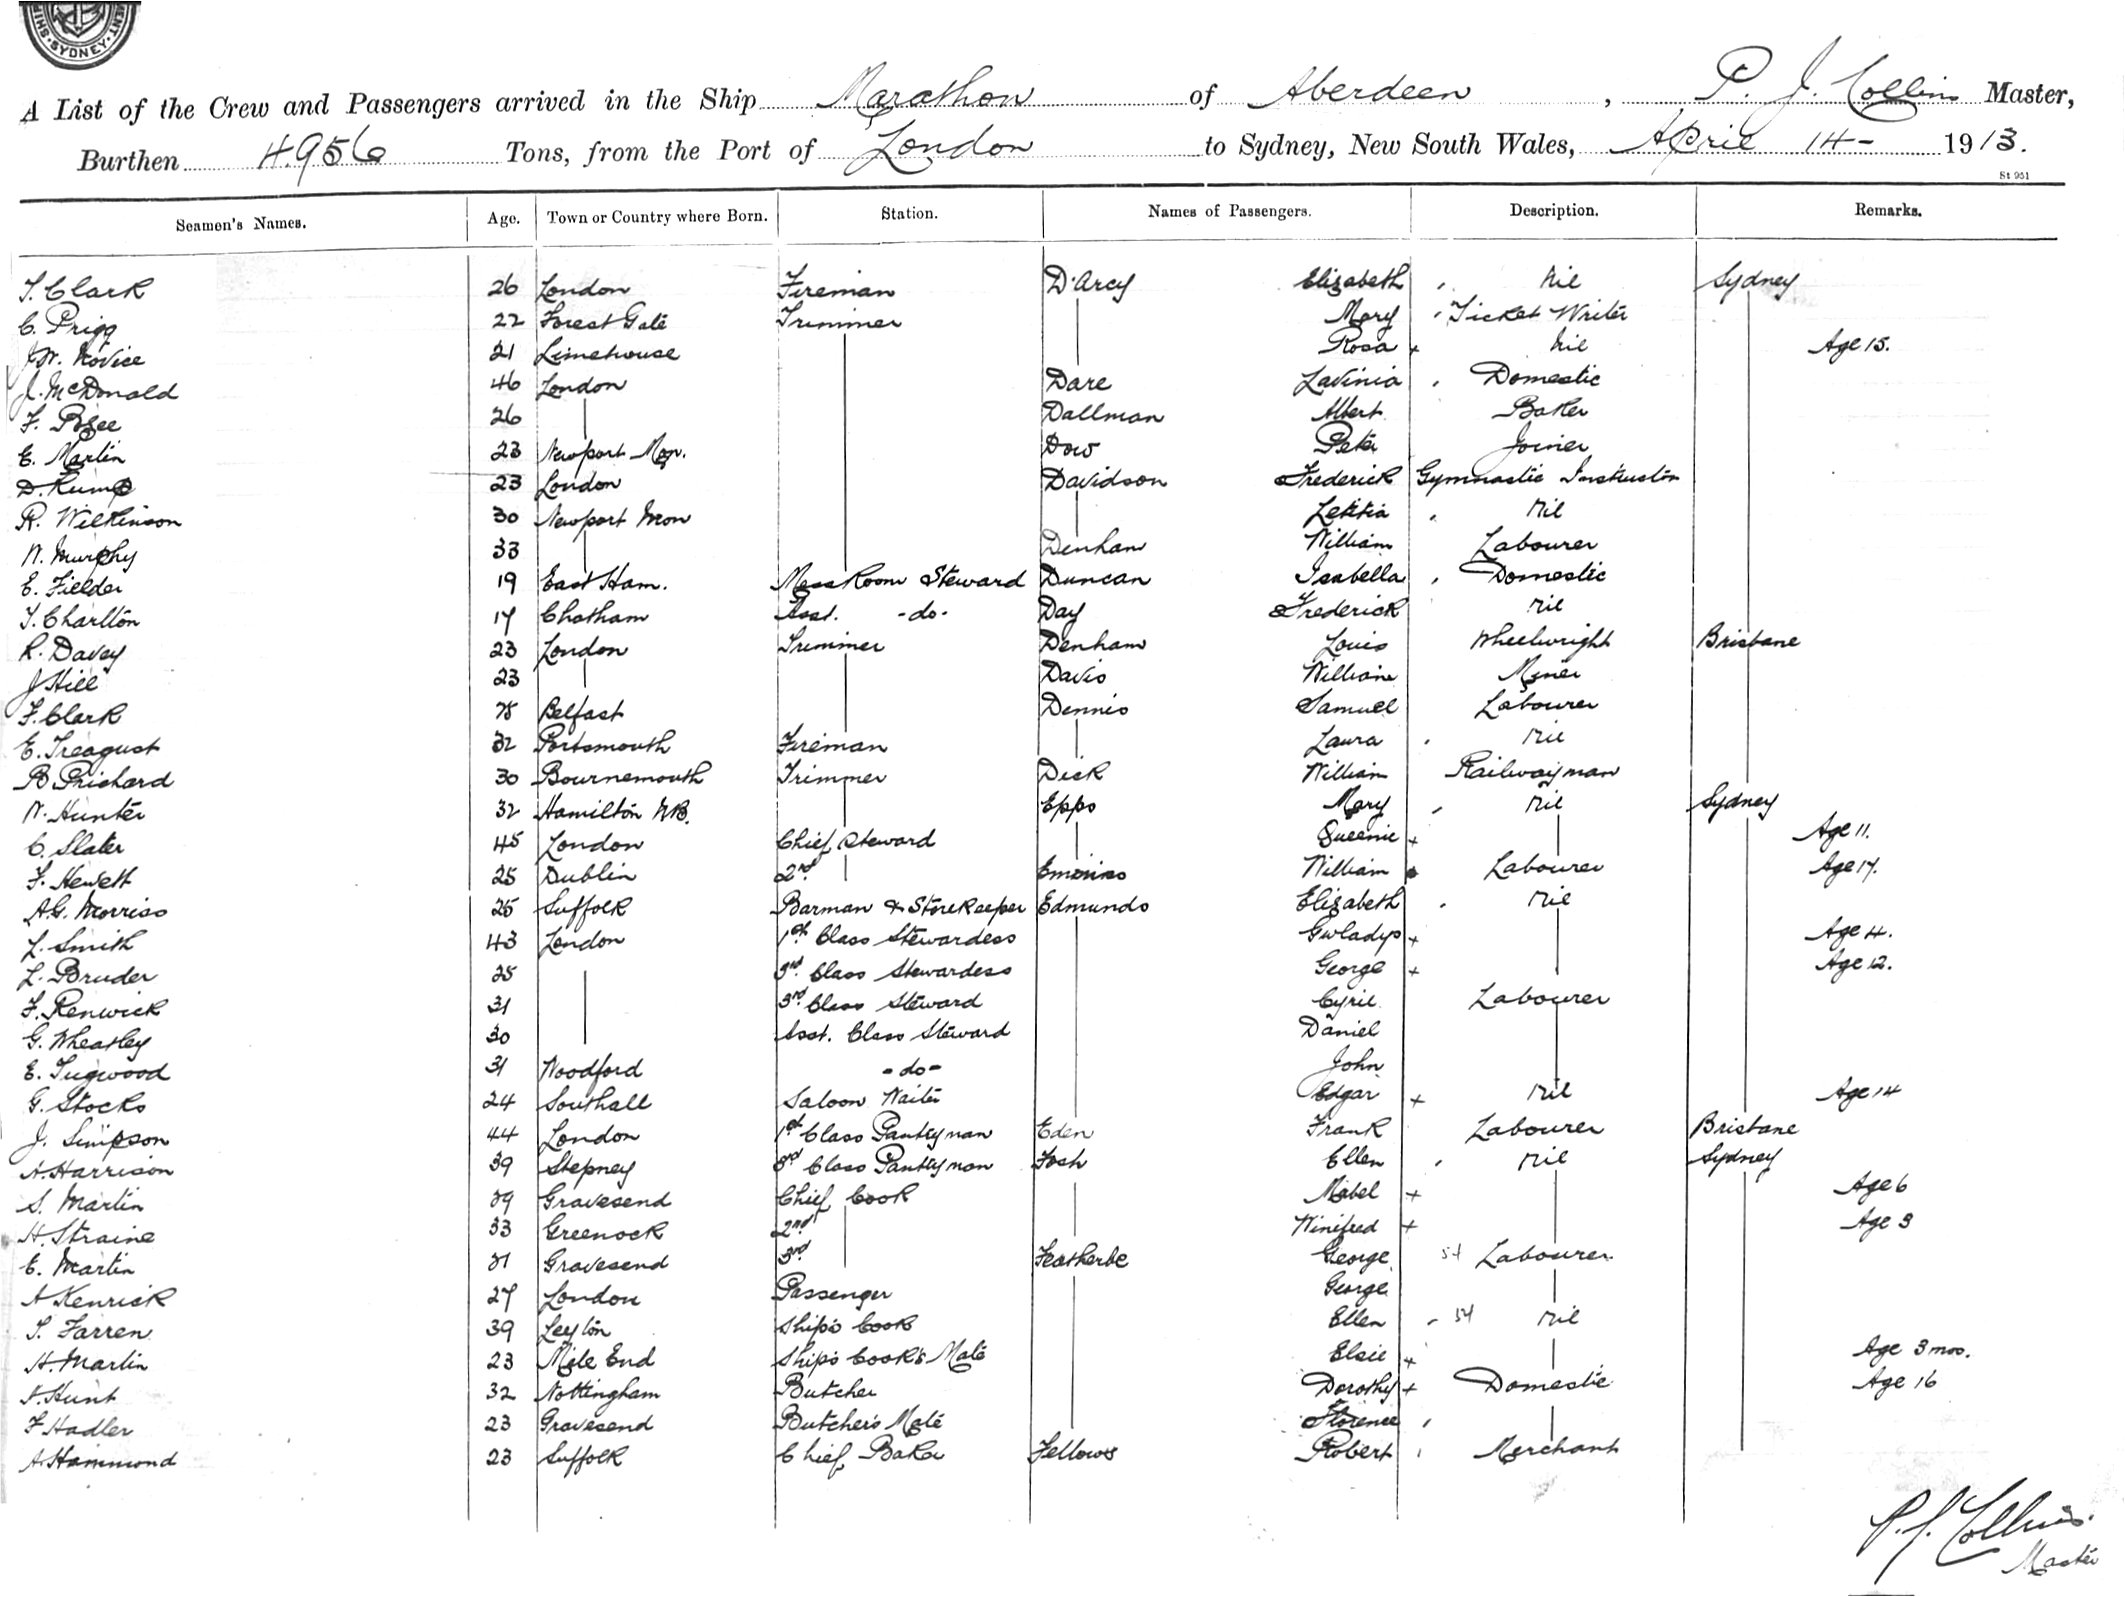 SYDNEY
A List of the Crew and Passengers arrived in the Ship Marathon of Aberdeen, P. J. Collins Master,
Burthen 4956 Tons, from the Port of London to Sydney, New South Wales, April 14- 1913.
St 951
Seamen's Names. Age. Town or Country where Born. Station. Names of Passengers. Description. Remarks.
T. Clark 26 London Fireman D'Arcy Elizabeth Nil Sydney
C. Prigg 22 Forest Gate Trimmer Mary Ticket Writer
J.W. Novice 21 Limehouse Rosa + Nil Age 15.
J. McDonald 46 London Dare Lavinia Domestic
F. 26 Dallman Albert Baker
E. Martin 23 Newport Mon. Dow Peter Joiner
D. Kump 23 London Davidson Frederick Gymnastic Instructor
R. Wilkinson 30 Newport Mon Letitia Nil
W. Murphy 33 Denham William Labourer
E. Fielder 19 East Ham. Mess Room Steward Duncan Isabella Domestic
T. Charlton 17 Chatham Asst. -do- Day Frederick Nil
R. Davey 23 London Trimmer Denham Louis Wheelwright Brisbane
J Hill 23 Davis William Miner
F. Clark Belfast Dennis Samuel Labourer
E. Treagust 32 Portsmouth Fireman Laura Nil
B. Prichard 30 Bournemouth Trimmer Dick William Railwayman
W. Hunter 32 Hamilton NB. Epps Mary Nil Sydney
C. Slater 45 London Chief Steward Queenie + Age 11.
F. Hewett 25 Dublin 2nd William Labourer Age 17.
A.G. Morriss 25 Suffolk Barman & Storekeeper Edmunds Elizabeth Nil
L. Smith 43 London 1st Class Stewardess Gwladys + Age 4.
L. Bruder 35 3rd Class Stewardess George + Age 12.
F. Renwick 31 3rd Class Steward Cyril Labourer
G. Wheatley 30 Asst. Class Steward Daniel
E. Tugwood 31 Woodford -do- John
G. Stocks 24 Southall Saloon Waiter Edgar + Nil Age 14
J. Simpson 44 London 1st Class Pantryman Eden Frank Labourer Brisbane
A. Harrison 39 Stepney 3rd Class Pantryman Fosh Ellen Nil Sydney
S. Martin 29 Gravesend Chief Cook Mabel + Age 6
H. Straine 33 Greenock 2nd Winifred + Age 3
E. Martin 21 Gravesend 3rd Featherbe George 54 Labourer
A Kenrick 27 London Passenger George
T. Farren 39 Leyton Ship's Cook Ellen 54 Nil
H. Martin 23 Mile End Ship's Cook's Mate Elsie + Age 3 mos.
A. Hunt 32 Nottingham Butcher Dorothy + Domestic Age 16
F Hadler 23 Gravesend Butcher's Mate Florence
A Hammond 23 Suffolk Chief Baker Fellows Robert Merchant
P. J. Collins.
Master